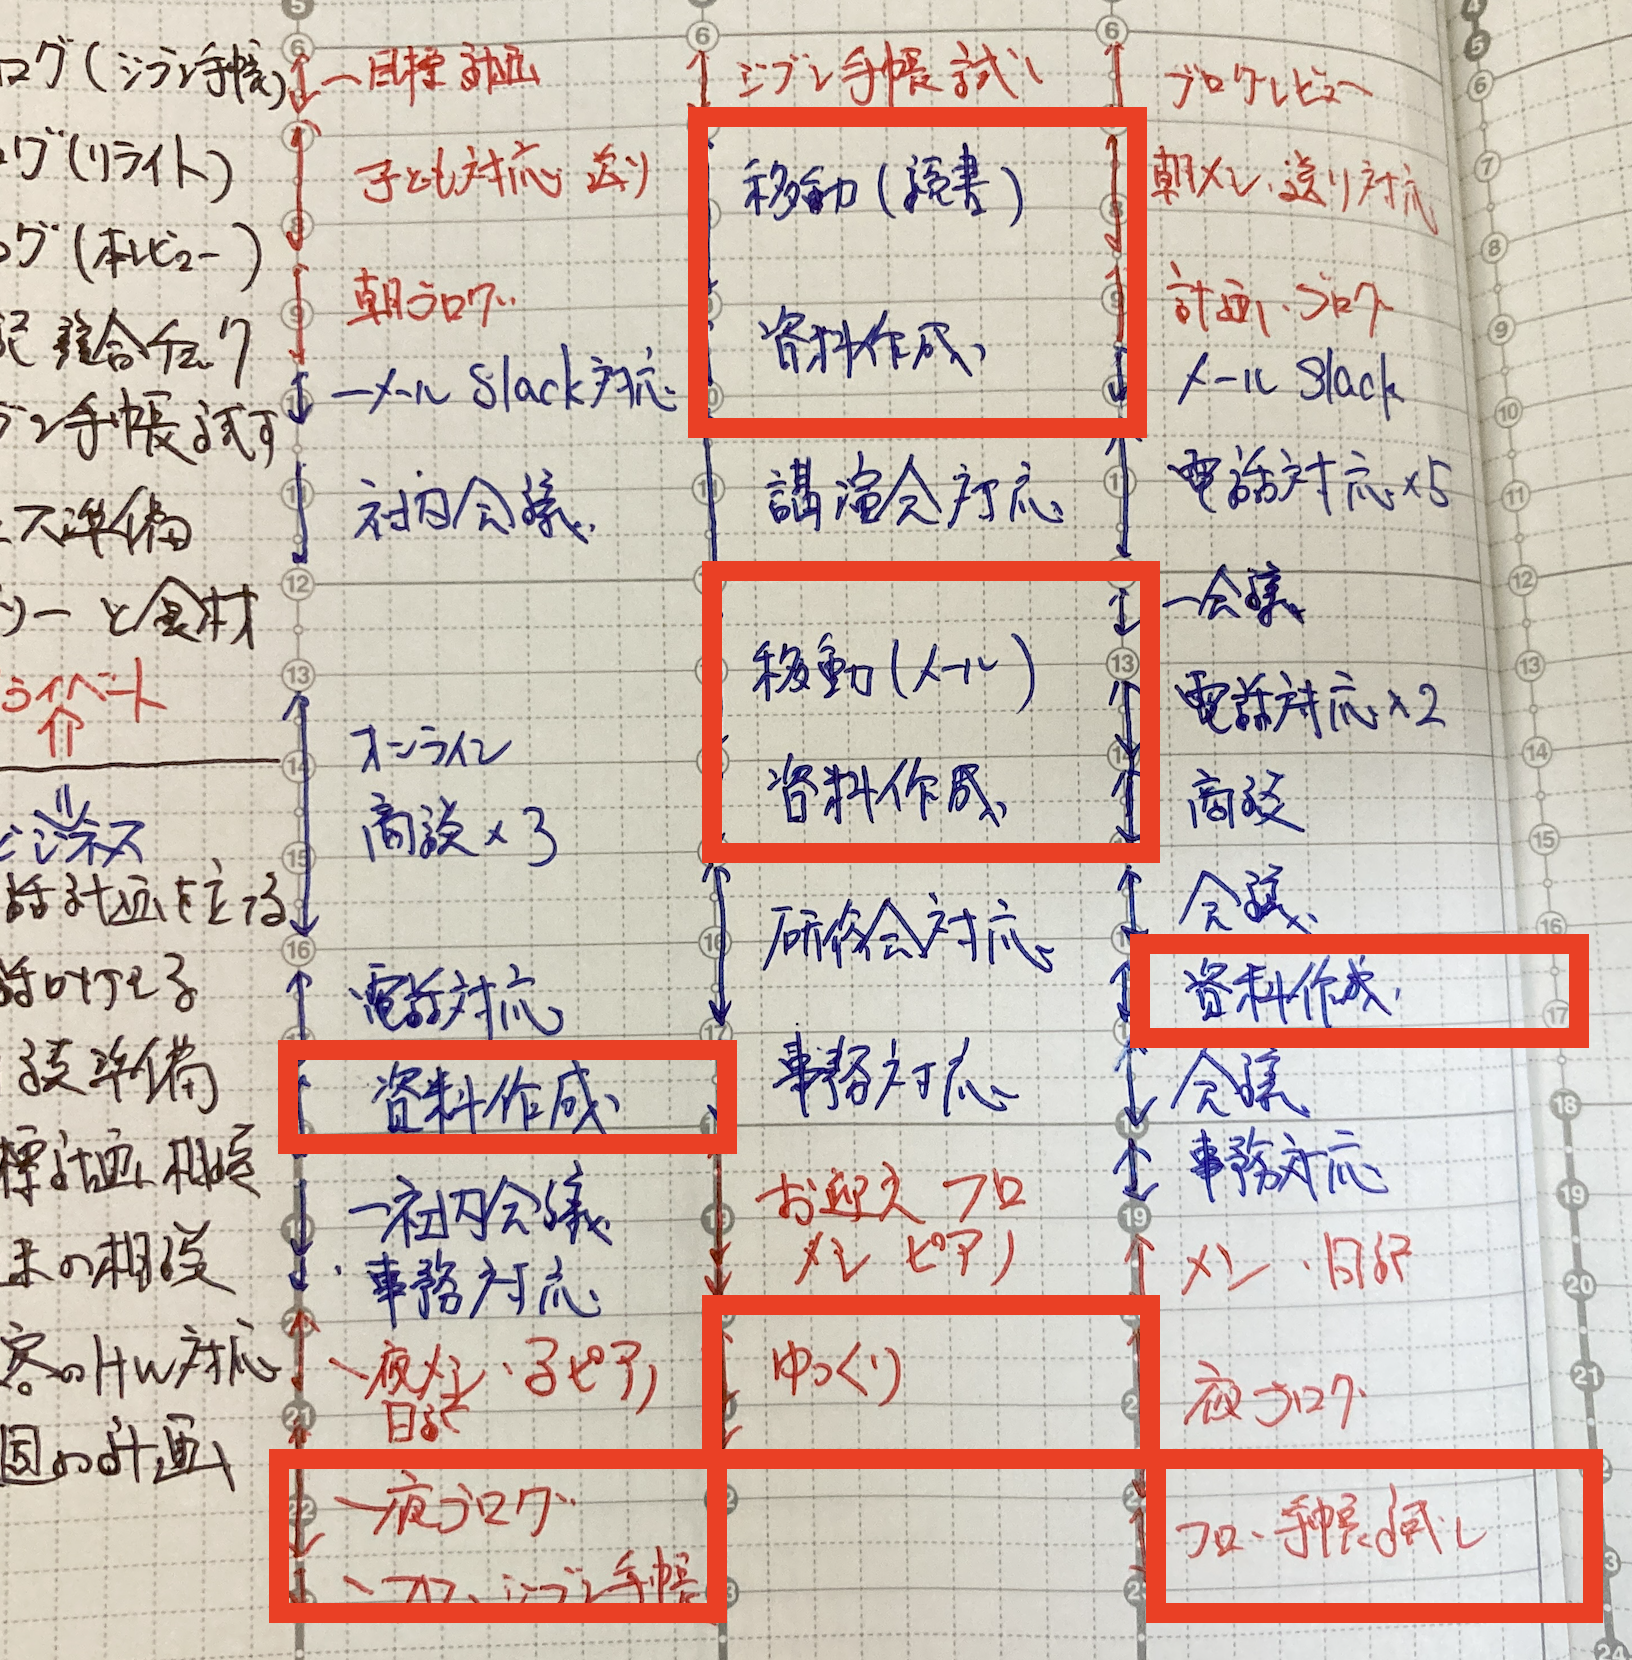 ログ(ジブン手帳)
ログ(リライト)
ログ(本レビュー)
記 整合チェック
ブン手帳試す
ス準備
リーと食材
ライベート
ビジネス
話計画を立てる
談準備
標計画、相談
末の相談
客のHW対応
週の計画
5
6
目標計画
子ども対応 送り
8
朝ブログ
9
メール Slack対応
11
社内会議
12
13
オンライン
14
商談×3
15
16
電話対応
資料作成
社内会議
事務対応
夜メシ・子ピアノ
日記
21
夜ブログ
22
フロ、ジブン手帳
6
ジブン手帳試し
移動(読書)
資料作成
11
講演会対応
移動(メール)
資料作成
研修会対応
16
17
事務対応
お迎え フロ
19
メシ ピアノ
ゆっくり
6
ブログレビュー
朝メシ・送り対応
8
計画、ブログ
9
メール Slack
11
電話対応×5
会議
13
電話対応×2
商談
会議
資料作成
会議
事務対応
19
メシ・日記
夜ブログ
フロ、手帳試し
4
5
6
7
8
9
10
11
12
13
14
15
16
17
18
19
20
21
24